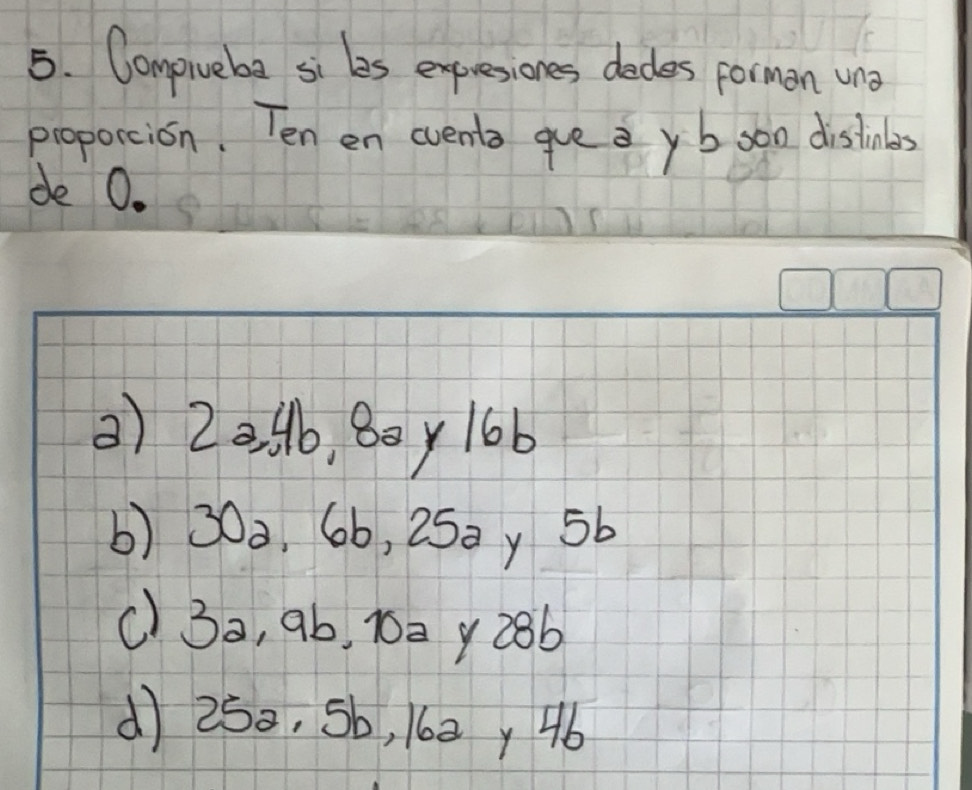 5. Comprueba si las expresiones dadas forman una
proporción. Ten en cuenta que a y b son distintas
de 0.
a) 2a, 4b, 8a y 16b
b) 30a, 6b, 25a y 5b
c) 3a, 9b, 10a y 28b
d) 25a, 5b, 16a y 4b